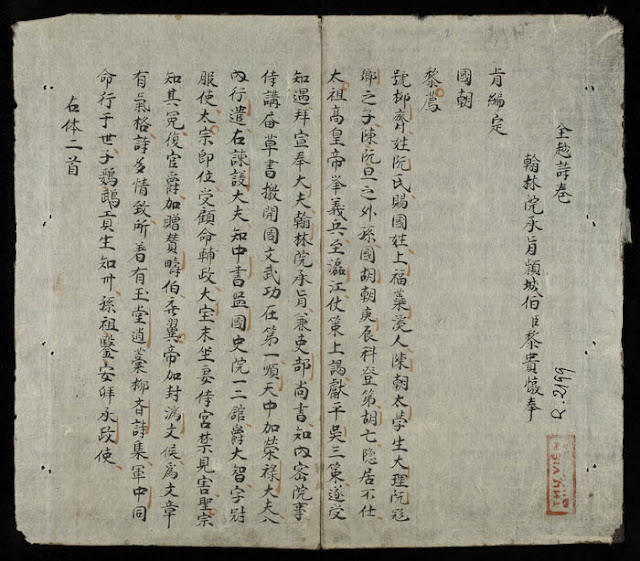 全越詩卷
翰林院承旨頴城伯臣黎貴惇奉
旨編定
國朝
黎廌
號抑齋姓阮氏賜國姓上福蘂溪人陳朝太學生大理阮飛
卿之子陳阮旦之外孫國胡朝庚辰科登第胡亡隐居不仕
太祖高皇帝举義兵至瀘江仗策上謁獻平吴三策遂受
知遇拜宣奉大夫翰林院承旨兼吏部尚書知內密院事
侍講帝草書檄開國文武功臣第一順天中加荣祿大夫入
內行遣右諫議大夫知中書監國史院一三舘爵大智字冠
服使太宗即位受顧命輔政大宝末坐妻侍宮禁見害聖宗
知其冤復官爵加贈賛疇伯 翼帝加封濟文侯爲文章
有氣格詩多情致所著有玉堂遺藁抑斉詩集軍中同
命行于世子鸚鵡貢生知州孫祖鑒安拜承政使
右体二首
R.2199
THU VIEN